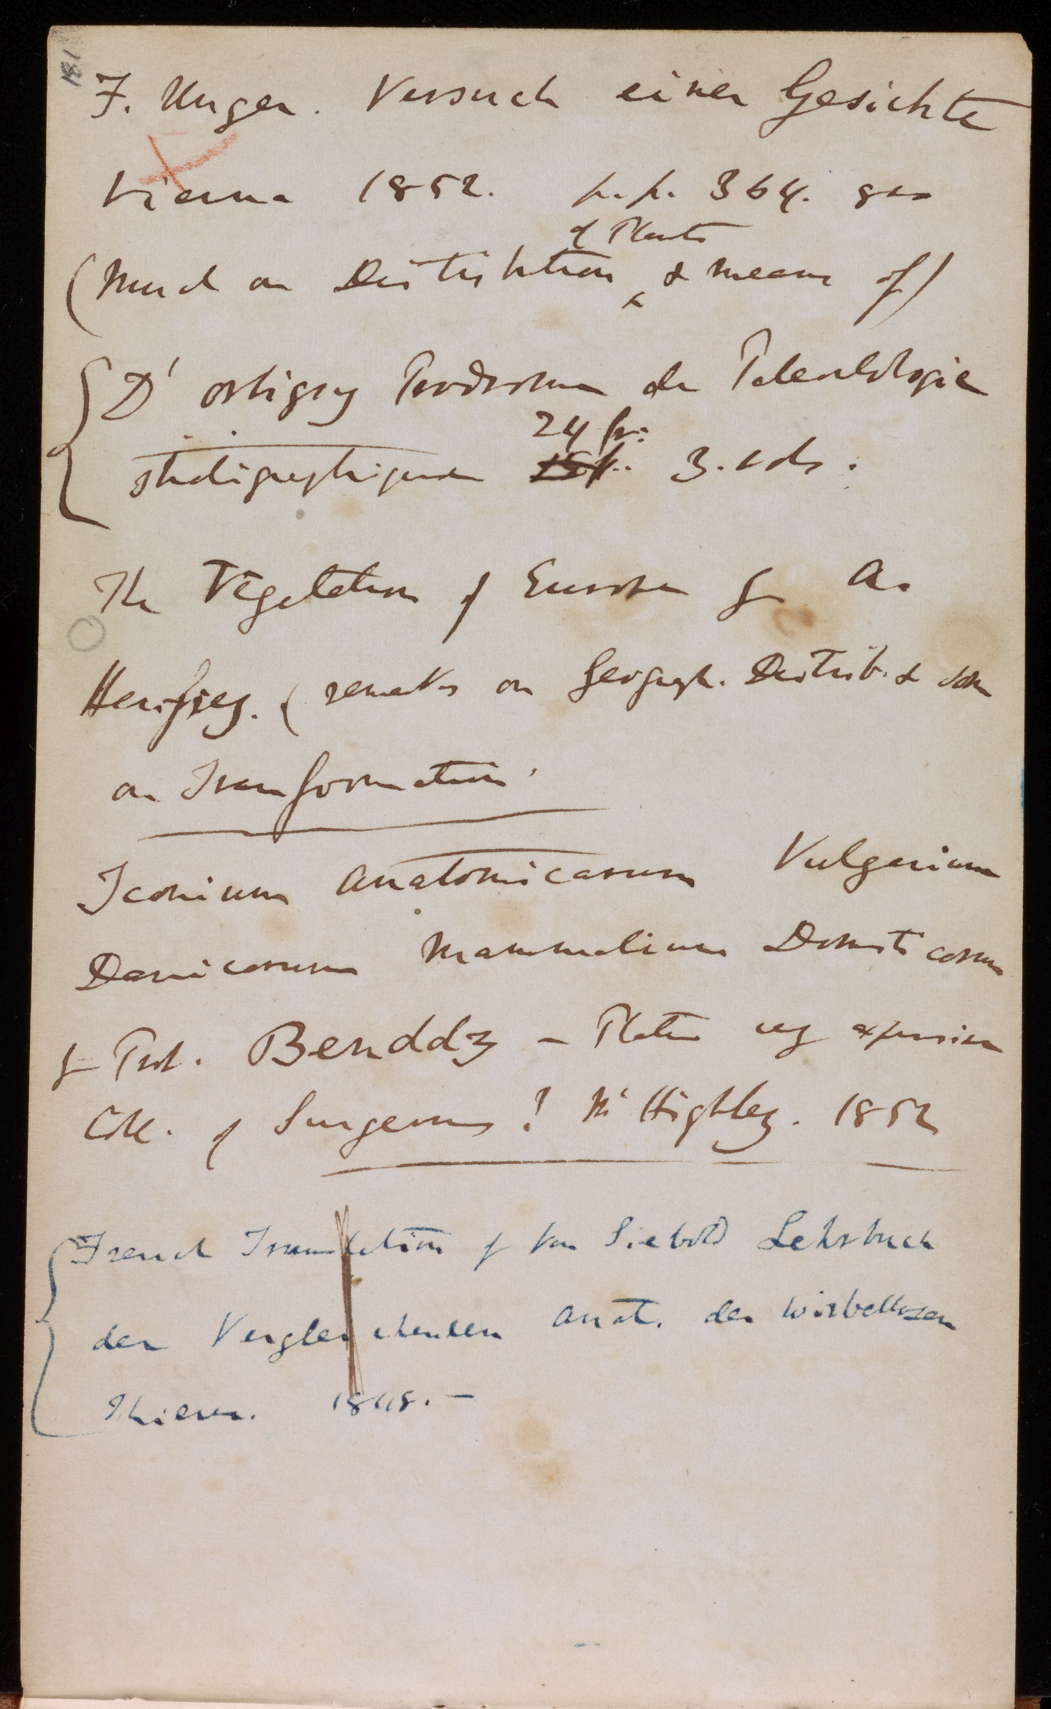 181
F. Unger. Versuch einer Gesichte
Vienna 1852. p.p. 364. 8vo
of Plants
(Much on Distribution & means of)
D'orbigny Prodrome de Paleontologie
24 fr:
stratigraphique 3. vols.
The Vegetation of Europe by A.
Henfrey. (remarks on Geograph. Distrib. & some
on Transformation.
Iconium anatomicarum Vulgarium
Danicorum Mammalium Domesticorum
by Prof. Benddz – Plates very expensive
Coll. of Surgeons? Mr Highley. 1852
French Translation of Von Siebold Lehrbuch
der Vergleichenden Anat. der Wirbellosen
Thiere. 1848. –